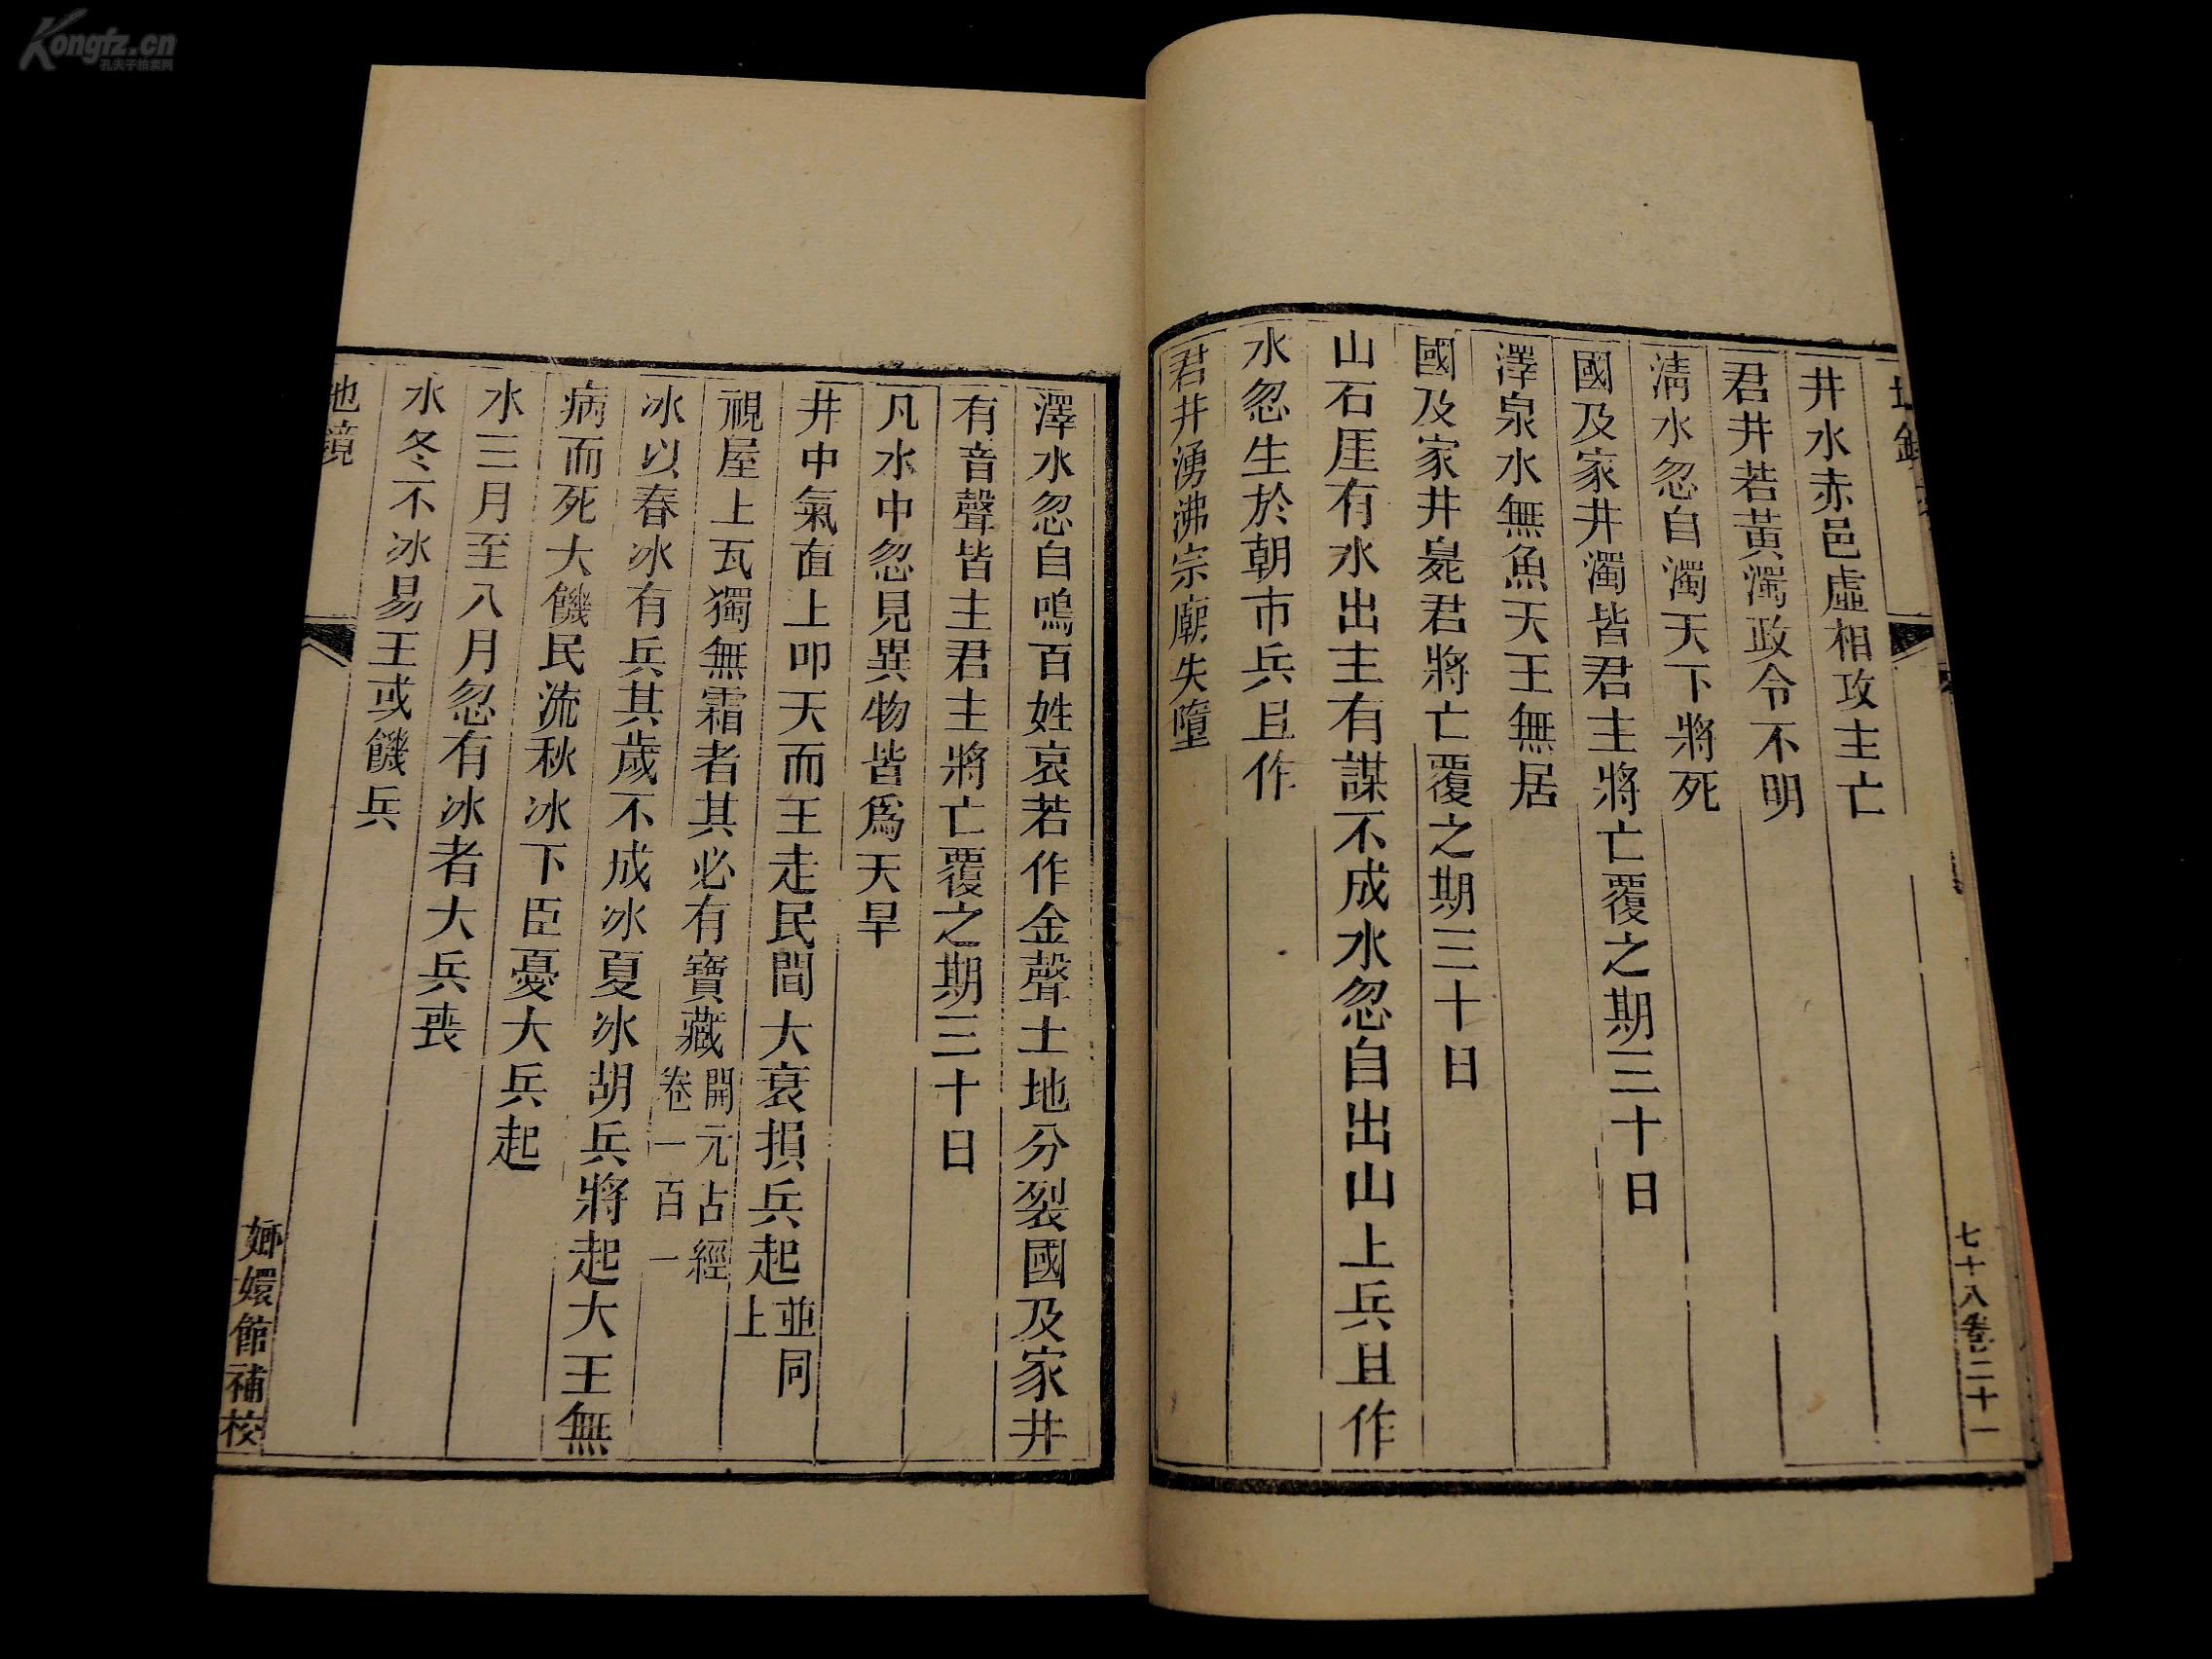 Kongfz.cn
孔夫子拍卖网
七十八卷二十一
井水赤邑虛相攻主亡
君井若黃濁政令不明
淸水忽自濁天下將死
國及家井濁皆君主將亡覆之期三十日
澤泉水無魚天王無居
國及家井毚君將亡覆之期三十日
山石厓有水出主有謀不成水忽自出山上兵且作
水忽生於朝市兵且作
君井湧沸宗廟失墮
澤水忽自鳴百姓哀若作金聲土地分裂國及家井
有音聲皆主君主將亡覆之期三十日
凡水中忽見異物皆爲天旱
井中氣直上叩天而王走民間大衰損兵起並同上
視屋上瓦獨無霜者其必有寶藏開元占經卷一百一
冰以春冰有兵其歲不成冰夏冰胡兵將起大王無
病而死大饑民流秋冰下臣憂大兵起
水三月至八月忽有冰者大兵喪
水冬不冰易王或饑兵
地鏡
嫏嬛館補校